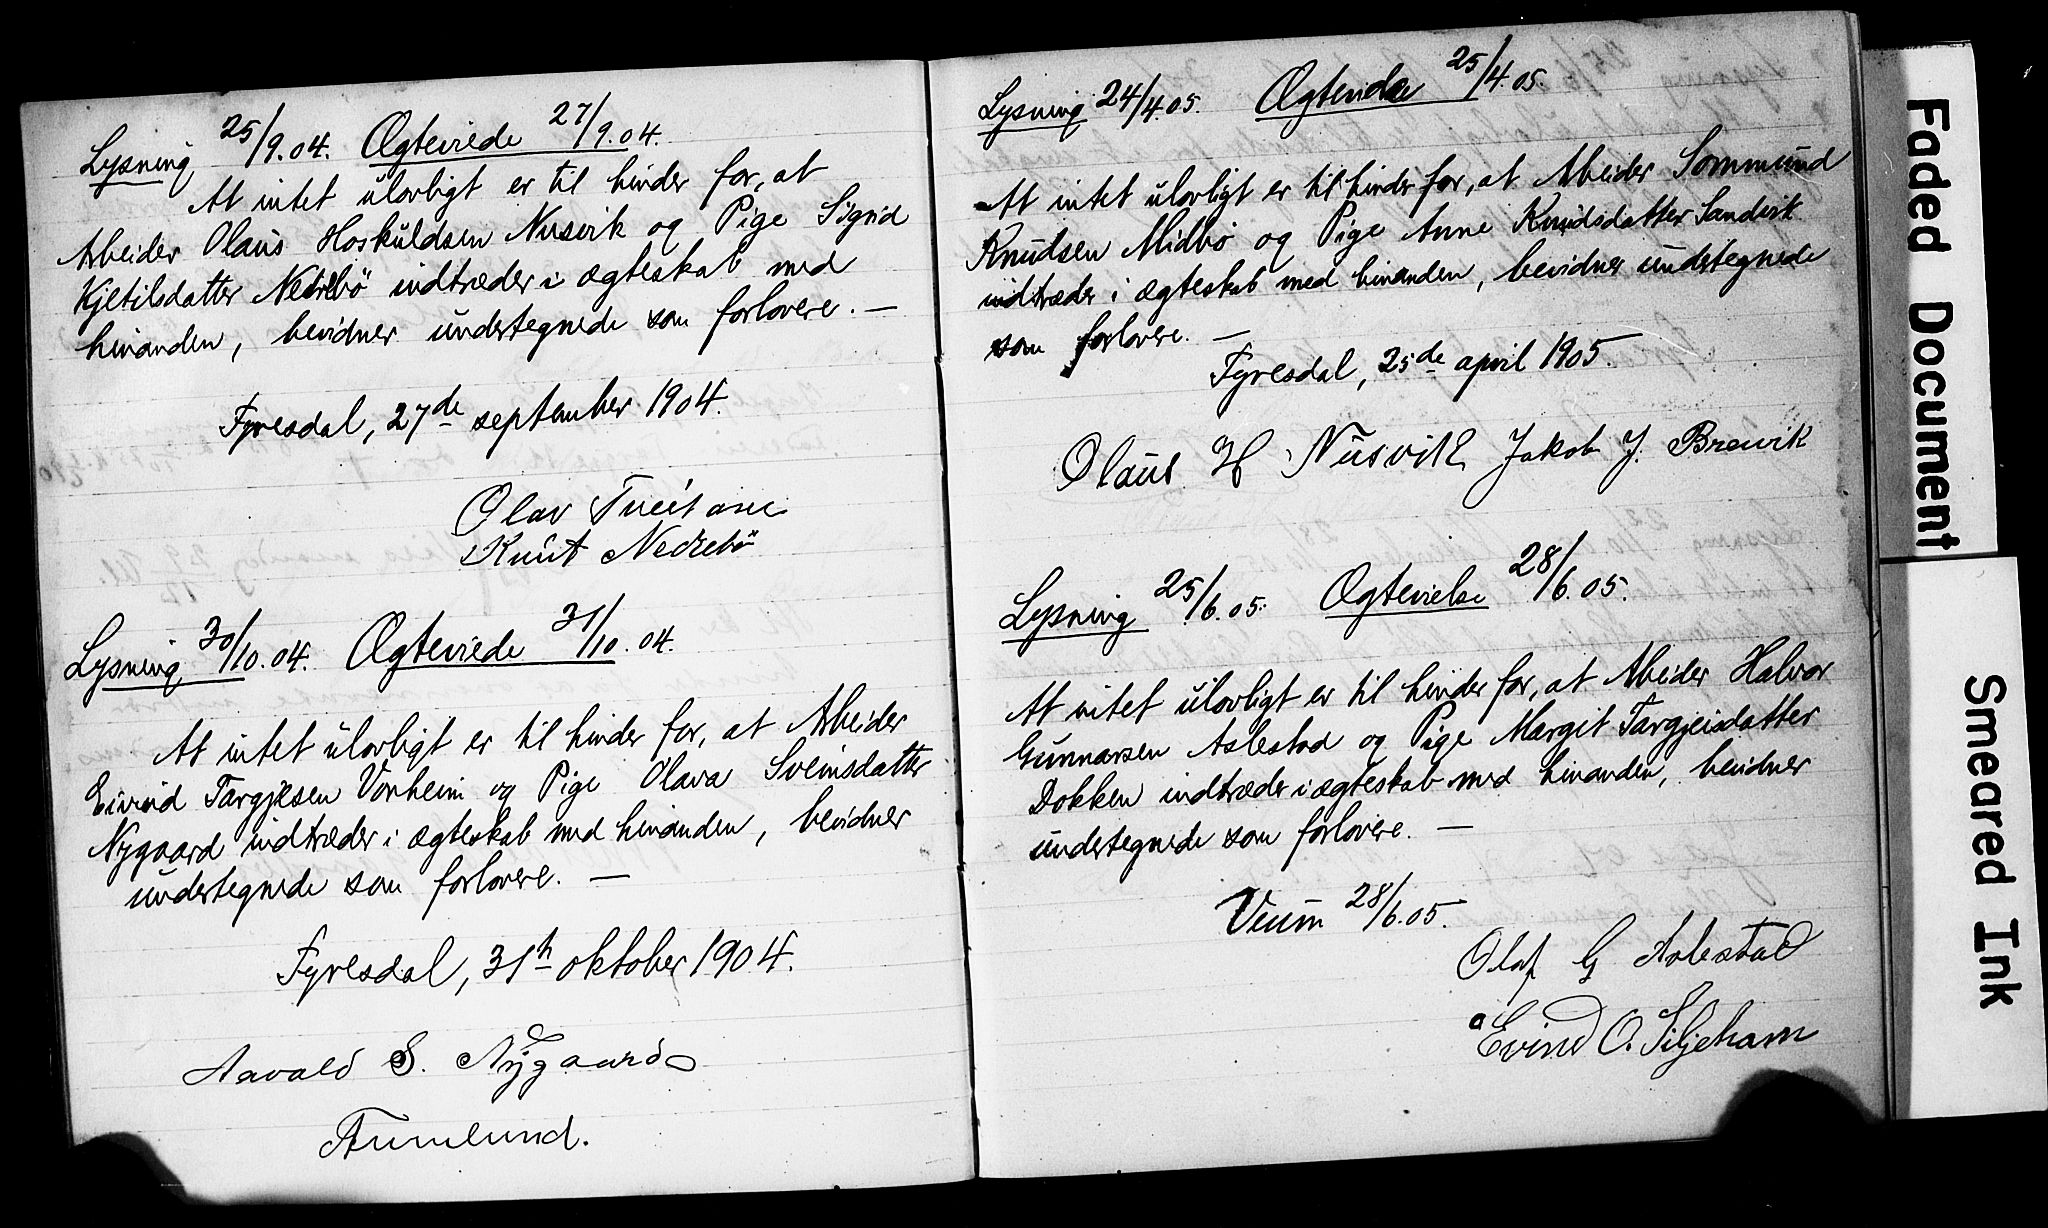 Lysning 25/9.04. Ægteviede 27/9.04.
At intet ulovligt er til hinder for, at
Arbeider Olaus Hoskuldsen Nusvik og Pige Sigrid
Kjetilsdatter Nedrebö indtræder i ægteskab med
hinanden, bevidner undertegnede som forlovere. —
Fyresdal, 27de september 1904.
Olav Tveitane
Knut Nedrebö
Lysning 30/10.04. Ægteviede 31/10.04.
At intet ulovligt er til hinder for, at Arbeider
Eivind Targjesen Vonheim og Pige Olava Sveinsdatter
Nygaard indtræder i ægteskab med hinanden, bevidner
undertegnede som forlovere. —
Fyresdal, 31th oktober 1904.
Aavald S. Nygaard
Lysning 24/4.05. Ægteviede 25/4.05.
At intet ulovligt er til hinder for, at Arbeider Sommund
Knudsen Midbö og Pige Anne Knudsdatter Sandvik
indtræder i ægteskab med hinanden, bevidner undertegnede
som forlovere. —
Fyresdal, 25de april 1905.
Olaus H Nusvik Jakob J. Brevik
Lysning 25/6.05. Ægtevielse 28/6.05.
At intet ulovligt er til hinder for, at Arbeider Halvor
Gunnarsen Aslestad og Pige Margit Targjeisdatter
Dokken indtræder i ægteskab med hinanden, bevidner
undertegnede som forlovere. —
Veum 28/6.05.
Olaf G Aslestad
Evind O. Siljeham
Faded Document
Smeared Ink